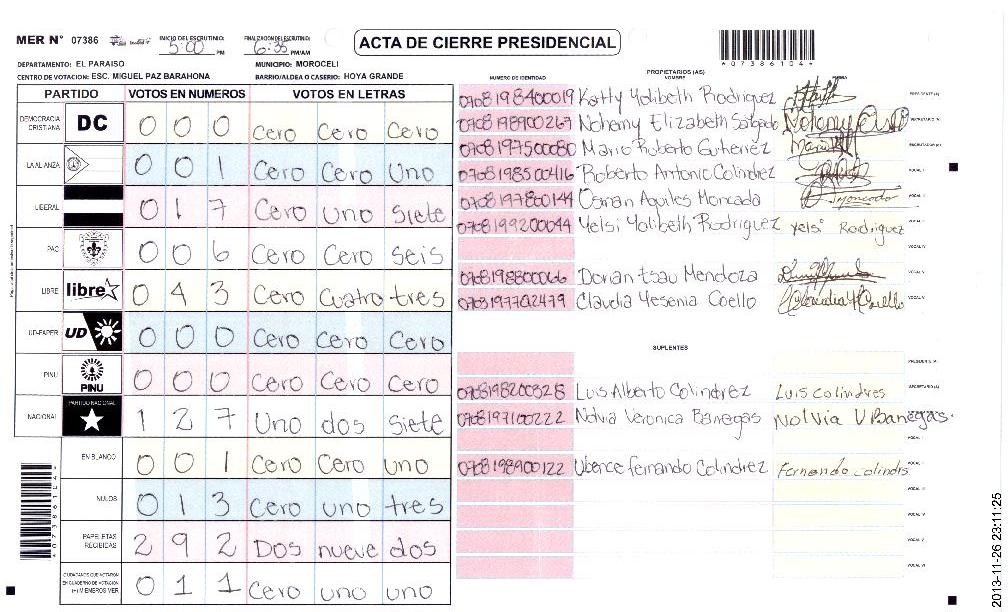 MER N° 07386 INICIO DEL ESCRUTINIO: 5:00 PM FINALIZACION ESCRUTINIO: 6:35 PM/AM
ACTA DE CIERRE PRESIDENCIAL
*07386104*
DEPARTAMENTO: EL PARAISO MUNICIPIO: MOROCELI
CENTRO DE VOTACION: ESC. MIGUEL PAZ BARAHONA BARRIO/ALDEA O CASERIO: HOYA GRANDE
PARTIDO VOTOS EN NUMEROS VOTOS EN LETRAS
DEMOCRACIA CRISTIANA DC 0 0 0 Cero Cero Cero
LA ALIANZA 0 0 1 Cero Cero Uno
LIBERAL 0 1 7 Cero Uno Siete
PAC 0 0 6 Cero Cero Seis
LIBRE libre 0 4 3 Cero Cuatro tres
UD-FAPER UD 0 0 0 Cero Cero Cero
PINU PINU 0 0 0 Cero Cero Cero
NACIONAL PARTIDO NACIONAL 1 2 7 Uno dos Siete
EN BLANCO 0 0 1 Cero Cero uno
NULOS 0 1 3 Cero uno tres
PAPELETAS RECIBIDAS 2 9 2 Dos nueve dos
CIUDADANOS QUE VOTARON EN CUADERNO DE VOTACION (+) MIEMBROS MER 0 1 1 Cero uno uno
*07386104*
PROPIETARIOS (AS)
NUMERO DE IDENTIDAD NOMBRE FIRMA
0708198400019 Katty Yolibeth Rodriguez PRESIDENTE (A)
0708198900267 Nohemy Elizabeth Salgado SECRETARIO (A)
0708197500080 Mario Roberto Gutierrez ESCRUTADOR (A)
0708198500416 Roberto Antonio Colindrez VOCAL I
0708197800144 Osman Aquiles Moncada VOCAL II
0708199200044 Yelsi Yolibeth Rodriguez Yelsi Rodriguez VOCAL III
VOCAL IV
0708198800066 Dorian Isau Mendoza VOCAL V
0703197702479 Claudia Yesenia Coello VOCAL VI
SUPLENTES
PRESIDENTE (A)
0708198200328 Luis Alberto Colindrez Luis Colindres SECRETARIO (A)
0708197100222 Nolvia Veronica Banegas Nolvia V Banegas
VOCAL I
0708198900122 Ubence fernando Colindrez Fernando colindis VOCAL II
VOCAL III
VOCAL IV
VOCAL V
VOCAL VI
2013-11-26 23:11:25